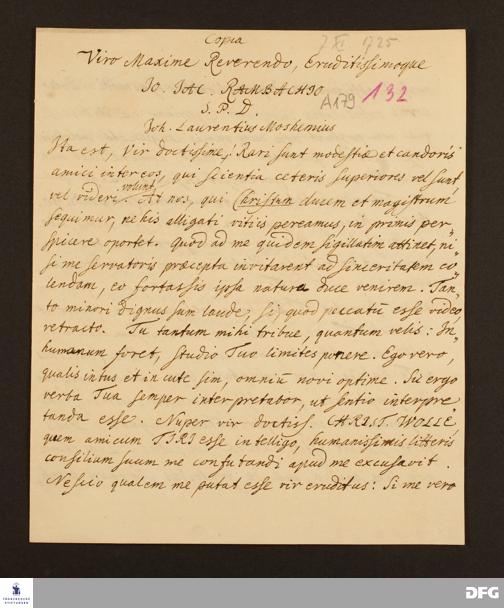 Copia
7 XI 1725
Viro Maxime Reverendo, Eruditissimoque
IO. IAC. RAMBACHIO
A179 132
S. P. D.
Joh. Laurentius Moshemius
Ita est, Vir doctissime! Rari sunt modestiæ et candoris
amici inter eos, qui scientia ceteris superiores vel sunt,
vel videri volunt. At nos, qui Christum ducem et magistrum
sequimur, ne his alligati vitiis pereamus, in primis per-
spicere oportet. Quod ad me quidem sigillatim attinet, ni-
si me servatoris præcepta invitarent ad sinceritatem co-
lendam, eo fortassis ipsa natura duce venirem. Tan-
to minori dignus sum laude, si, quod peccatū esse video,
retracto. Tu tantum mihi tribue, quantum velis: In-
humanum foret, studio Tuo limites ponere. Ego vero,
qualis intus et in cute sim, omniū novi optime. Sic ergo
verba Tua semper interpretabor, ut sentio interpre-
tanda esse. Nuper vir doctiss. CHRIST. WOLLE,
quem amicum TIBI esse intelligo, humanissimis litteris
consilium suum me confutandi apud me excusavit.
Nescio qualem me putat esse vir eruditus: Si me vero
FRANCKESCHE STIFTUNGEN
DFG